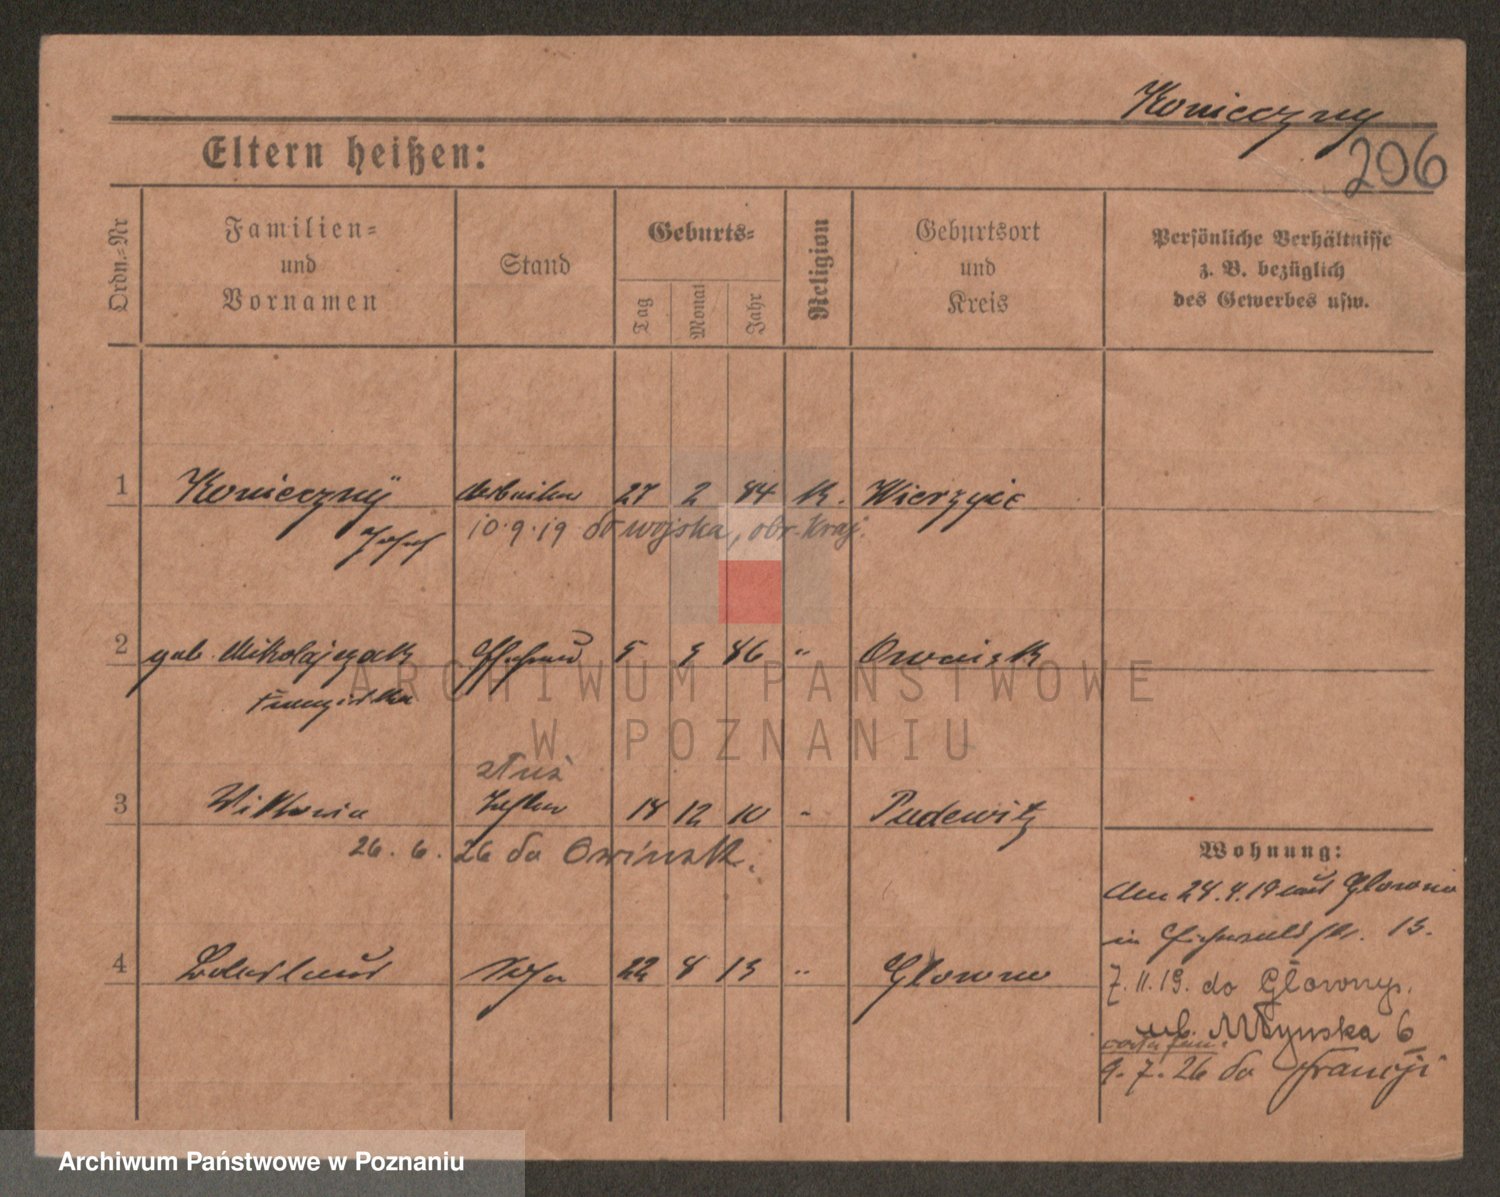 Konieczny
206
Eltern heißen:
Ordn.-Nr
Familien-
und
Vornamen
Stand
Geburts-
Tag
Monat
Jahr
Religion
Geburtsort
und
Kreis
Persönliche Verhältnisse
z. B. bezüglich
des Gewerbes usw.
1 Konieczny Arbeiter 27 2 84 K. Wierzyce
Josef 10.9.19 do wojska, obr. Kraj.
2 geb. Mikolajczak Ehefrau 5 86 " Owinsk
Franziska
służ
3 Viktoria Tochter 18 12 10 " Pudewitz
26. 6. 26 do Owinsk.
Wohnung:
Am 24.4.19 aus Glowno
in Eichwaldstr. 13.
4 Boleslaus Sohn 22 8 13 " Glowno
7. 11. 19. do Główny.
ul. Młyńska 6
9. 7. 26 do Francji
ARCHIWUM PAŃSTWOWE
W POZNANIU
Archiwum Państwowe w Poznaniu